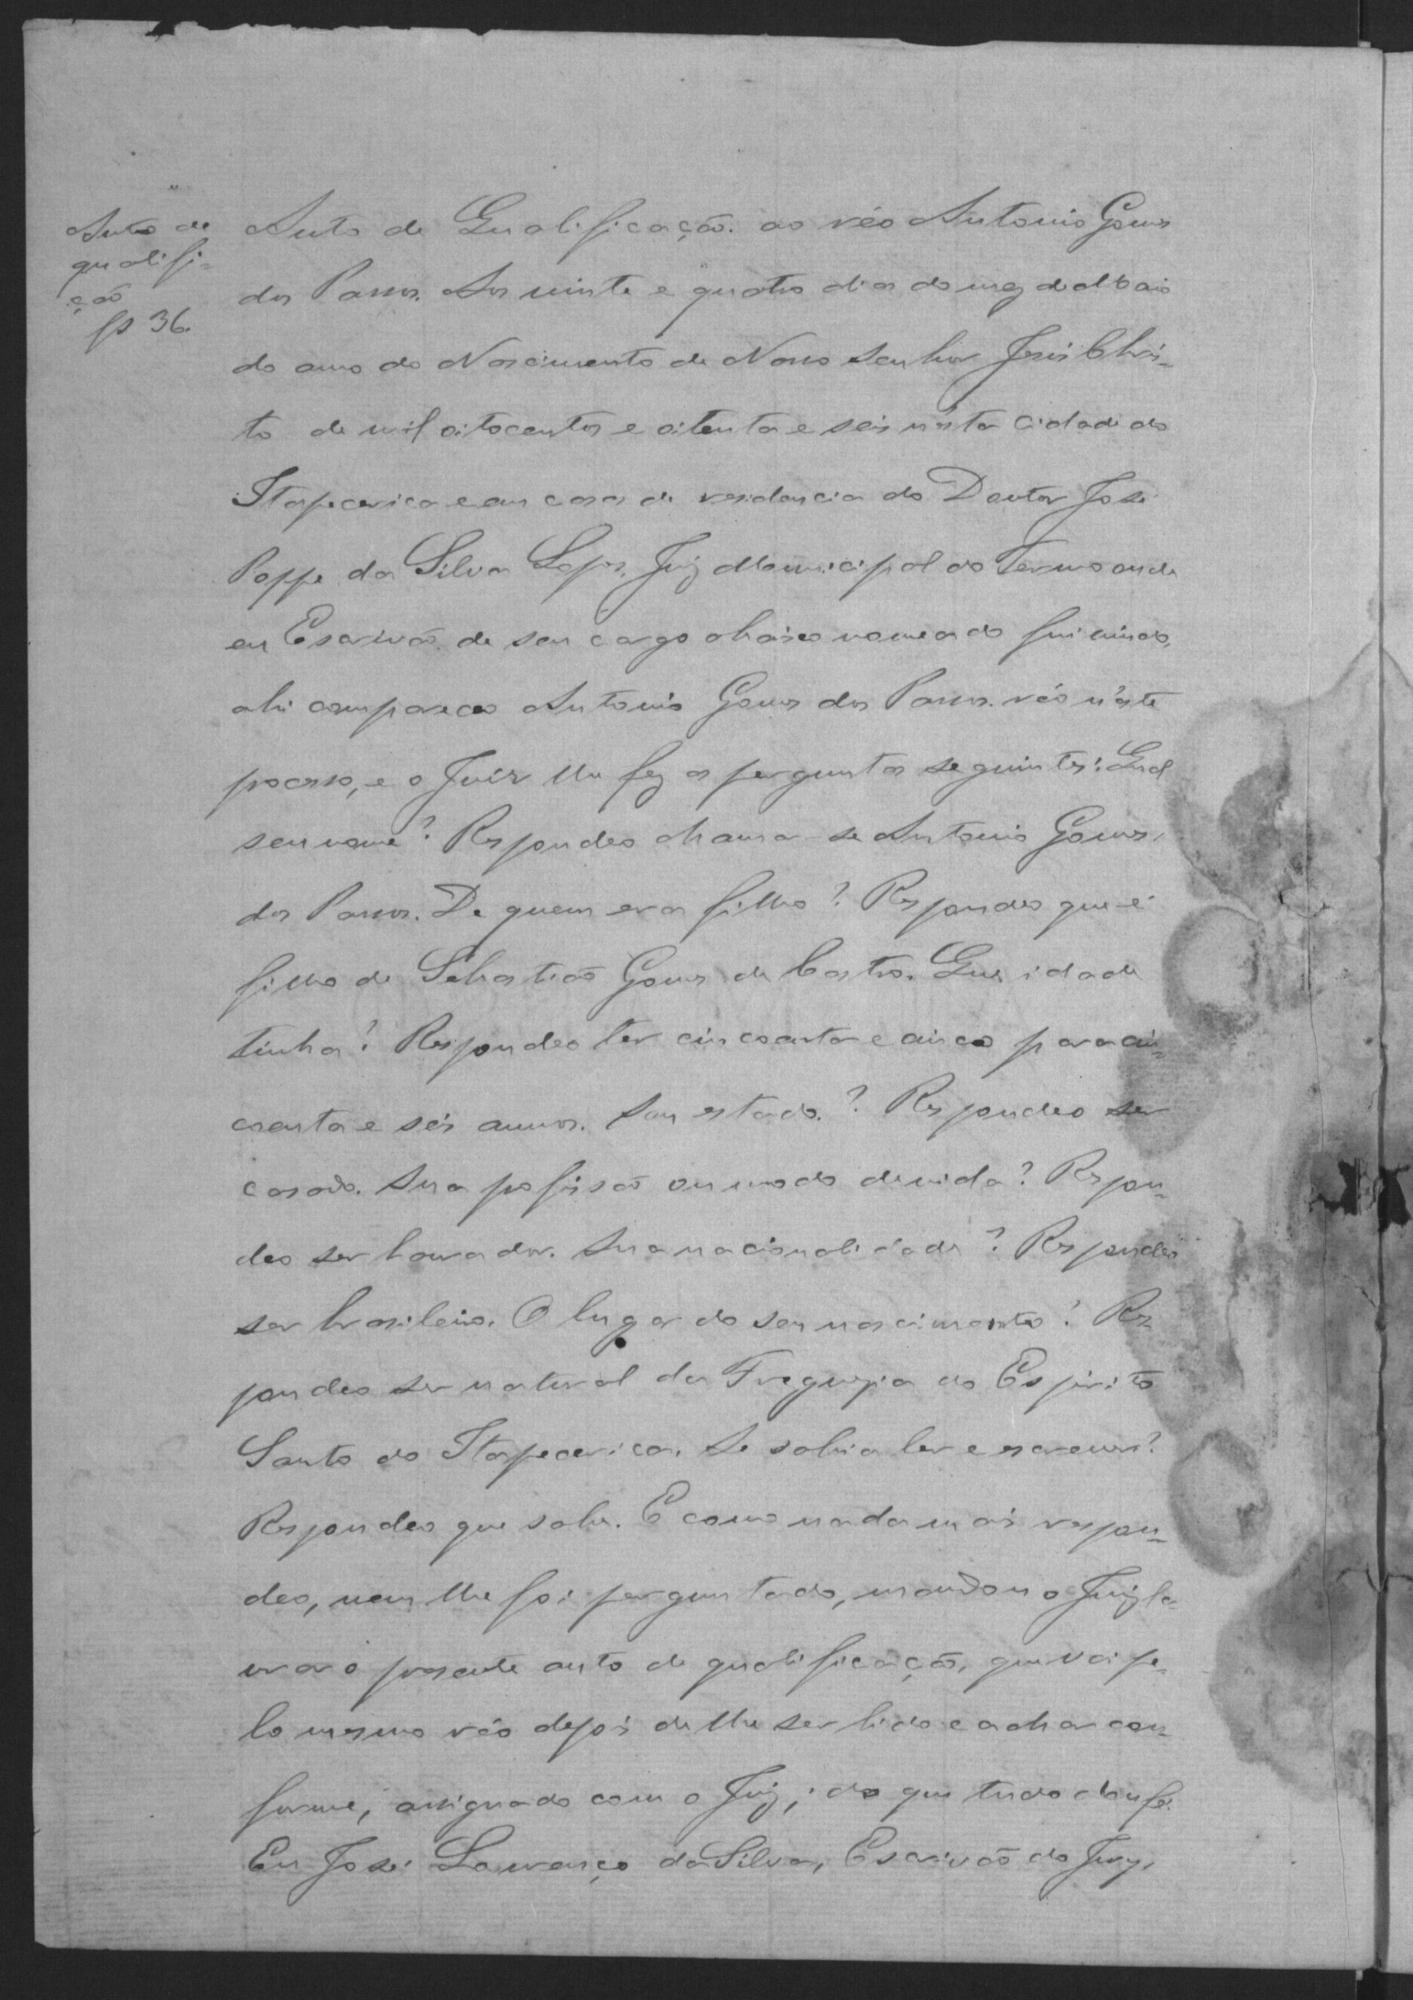 Auto de
qualifi-
ção
fs 36.
Auto de Qualificação ao réo Antonio Gomes
dos Passos. Aos vinte e quatro dias do mez de Maio
do anno do Nascimento de Nosso Senhor Jesús Chris-
to de mil oitocentos e oitenta e seis n'esta Cidade do
Itapecerica e em casa de residencia do Doutor José
Poppe da Silva Lopes, Juiz Municipal do Termo onde
eu Escrivão de seu cargo abaixo nomeado fui vindo,
ahi compareceo Antonio Gomes dos Passos, réo n'este
pocesso, e o Juiz lhe fez as perguntas seguintes: Qual
seu nome? Respondeo chamar-se Antonio Gomes
dos Passos. De quem era filho? Respondeo que é
filho de Sebastião Gomes de Castro. Que idade
tinha? Respondeo ter cincoenta e cinco para cin-
coenta e seis annos. Seu estado? Respondeo ser
casado. Sua pofissão ou modo de vida? Respon-
deo ser lavrador. Sua nacionalidade? Respondeo
ser brasileiro. O lugar do seu nascimento? Res
pondeo ser natural da Freguezia do Espirito
Santo do Itapecerica. Se sabia ler e escrever?
Respondeo que sabe. E como nada mais respon-
deo, nem lhe foi perguntado, mandou o Juiz la-
vrar o presente auto de qualificação, que vai pe-
lo mesmo réo depois de lhe ser lido e achar con-
forme, assignado com o Juiz; do que tudo dou fé.
Eu José Lourenço da Silva, Escrivão do Jury,